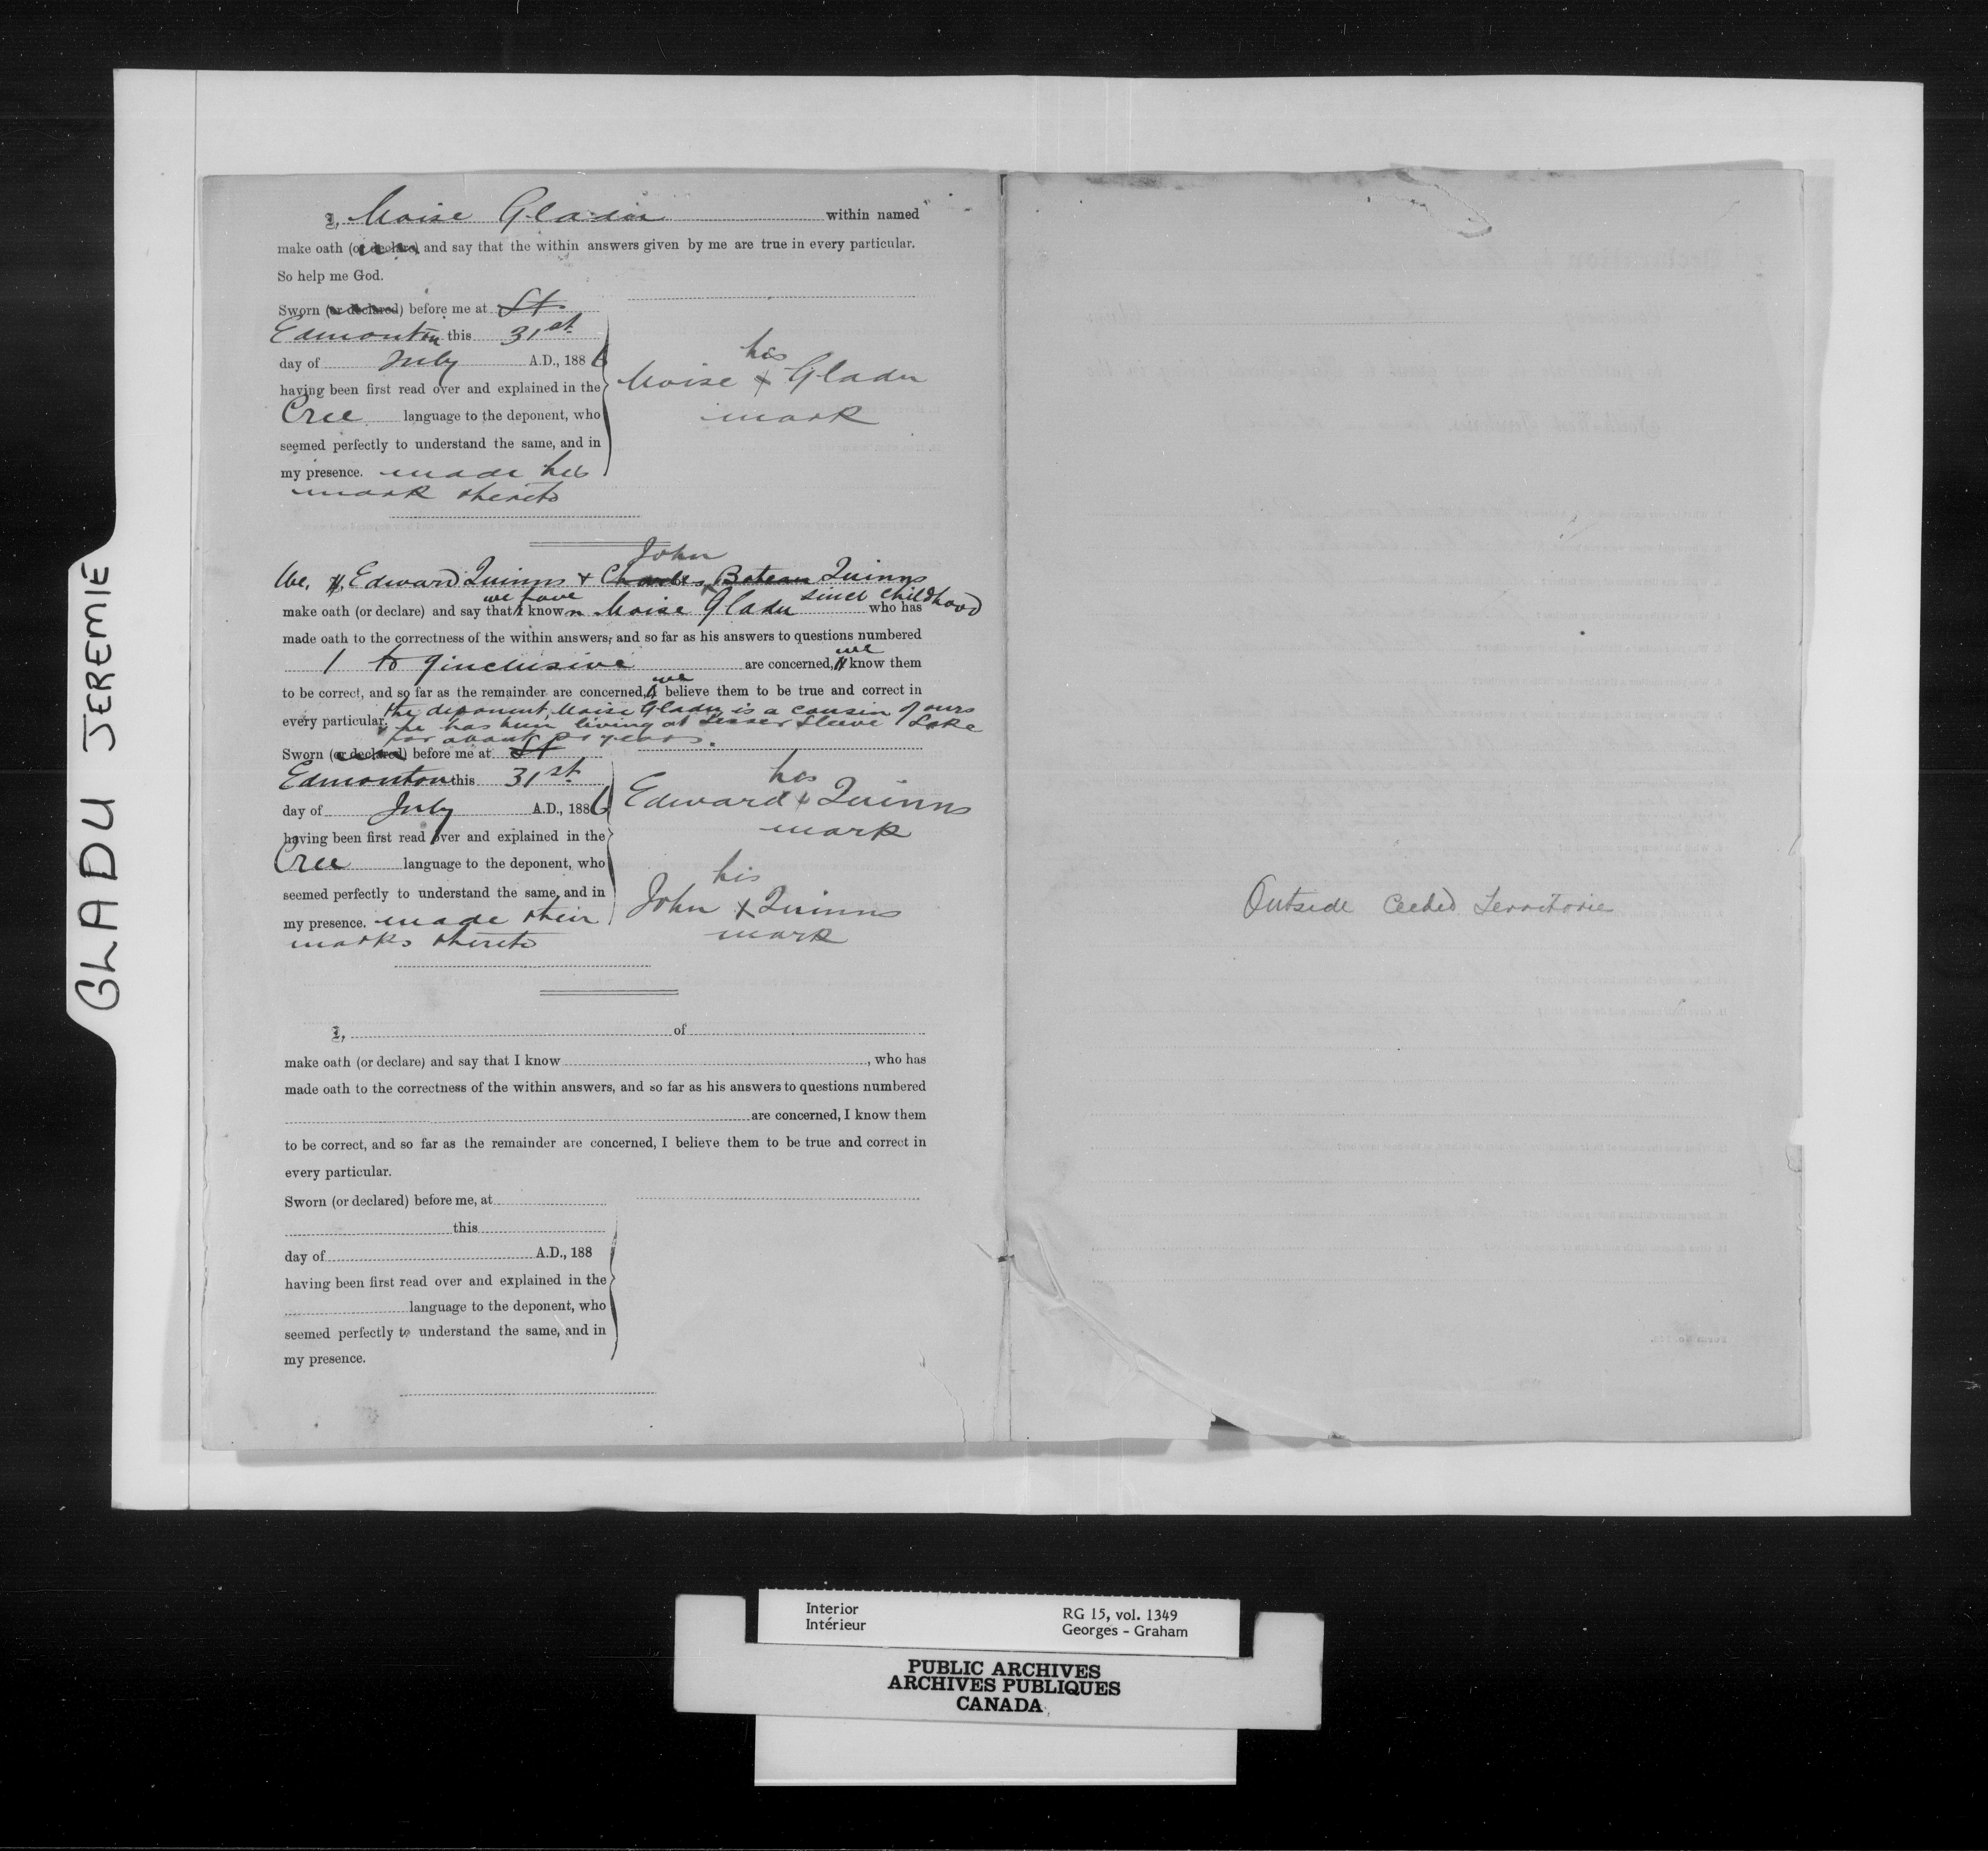 GLADU JEREMIE
I, Moise Gladu within named
make oath (or declare) and say that the within answers given by me are true in every particular.
So help me God.
Sworn (or declared) before me at St
Edmonton this 31st
day of July A.D., 1886
having been first read over and explained in the
Cree language to the deponent, who
seemed perfectly to understand the same, and in
my presence. made his
mark thereto
his
Moise x Gladu
mark
John
We, I, Edward Quinns + Charles Bateau Quinns
we have since childhood
make oath (or declare) and say that I known Moise Gladu who has
made oath to the correctness of the within answers, and so far as his answers to questions numbered
we
1 to 9 inclusive are concerned, I know them
we
to be correct, and so far as the remainder are concerned, I believe them to be true and correct in
every particular. the deponent Moise Gladu is a cousin of ours
he has been living at Lesser Slave Lake
for about years.
Sworn (or declared) before me at St
Edmonton this 31st
day of July A.D., 1886
having been first read over and explained in the
Cree language to the deponent, who
seemed perfectly to understand the same, and in
my presence. made their
marks thereto
his
Edward x Quinns
mark
his
John x Quinns
mark
I, of
make oath (or declare) and say that I know , who has
made oath to the correctness of the within answers, and so far as his answers to questions numbered
are concerned, I know them
to be correct, and so far as the remainder are concerned, I believe them to be true and correct in
every particular.
Sworn (or declared) before me, at
this
day of A.D., 188
having been first read over and explained in the
language to the deponent, who
seemed perfectly to understand the same, and in
my presence.
Outside Ceeded Territorie
Interior
Intérieur
RG 15, vol. 1349
Georges - Graham
PUBLIC ARCHIVES
ARCHIVES PUBLIQUES
CANADA